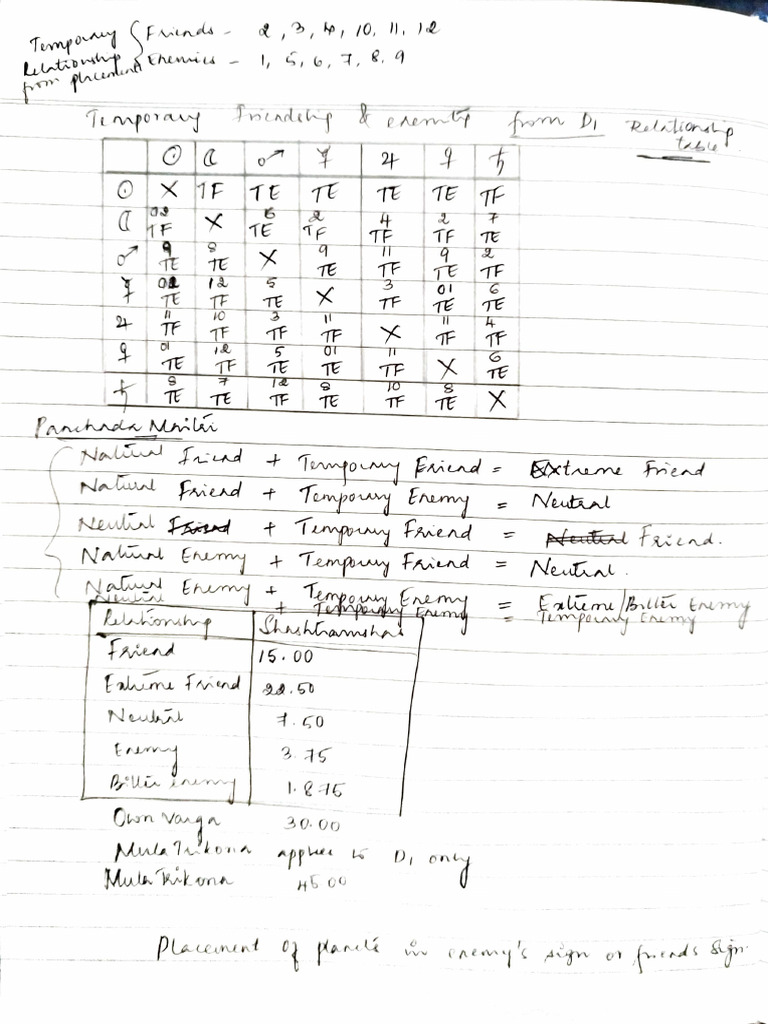 Temporary Friends - 2, 3, 4, 10, 11, 12
Relationship Enemies - 1, 5, 6, 7, 8, 9
from placement
Temporary Friendship & enemity from D1 Relationship
table
☉ ☾ ♂ ☿ ♃ ♀ ♄
☉ X TF TE TE TE TE TF
02 6 2 4 2 7
☾ TF X TE TF TF TF TE
9 8 9 11 9 2
♂ TE TE X TE TF TE TF
12 5 3 01 6
☿ TE TF TE X TF TE TE
11 10 3 11 11 4
♃ TF TF TF TF X TF TF
01 12 5 01 11 6
♀ TE TF TE TE TF X TE
8 7 12 8 10 8
♄ TE TE TF TE TF TE X
Panchada Maitri
Natural Friend + Temporary Friend = Extreme Friend
Natural Friend + Temporary Enemy = Neutral
Neutral Friend + Temporary Friend = Neutral Friend.
Natural Enemy + Temporary Friend = Neutral.
Natural Enemy + Temporary Enemy = Extreme/Bitter Enemy
Neutral + Temporary Enemy = Temporary Enemy
Relationship Shashtiamshas
Friend 15.00
Extreme Friend 22.50
Neutral 7.50
Enemy 3.75
Bitter enemy 1.875
Own Varga 30.00
Mula Trikona applies to D1 only
Mula Trikona 45.00
Placement of planets in enemy's sign or friends sign.